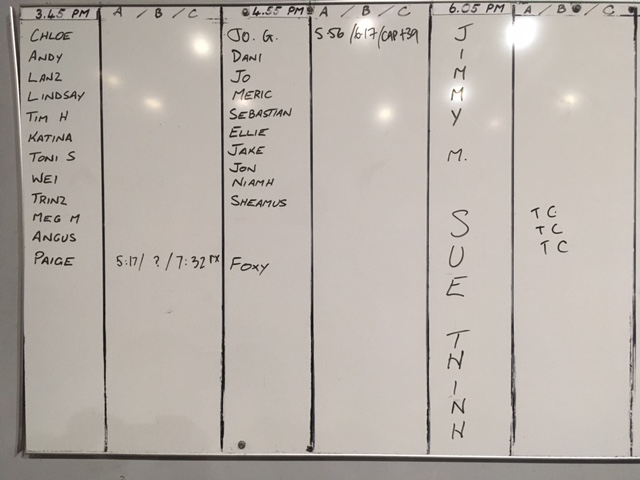 3.45 PM A / B / C 4.55 PM A / B / C 6.05 PM A / B / C
CHLOE JO. G. 5:56 /6:17/CAP+39 J
ANDY DANI I
LANZ JO M
LINDSAY MERIC M
TIM H SEBASTIAN Y
KATINA ELLIE
TONI S JAKE M.
WEI JON
NIAMH
TRINZ SHEAMUS
MEG M S TC
ANGUS U TC
TC
PAIGE 5:17/ ? /7:32 FOXY
E
T
H
I
N
H